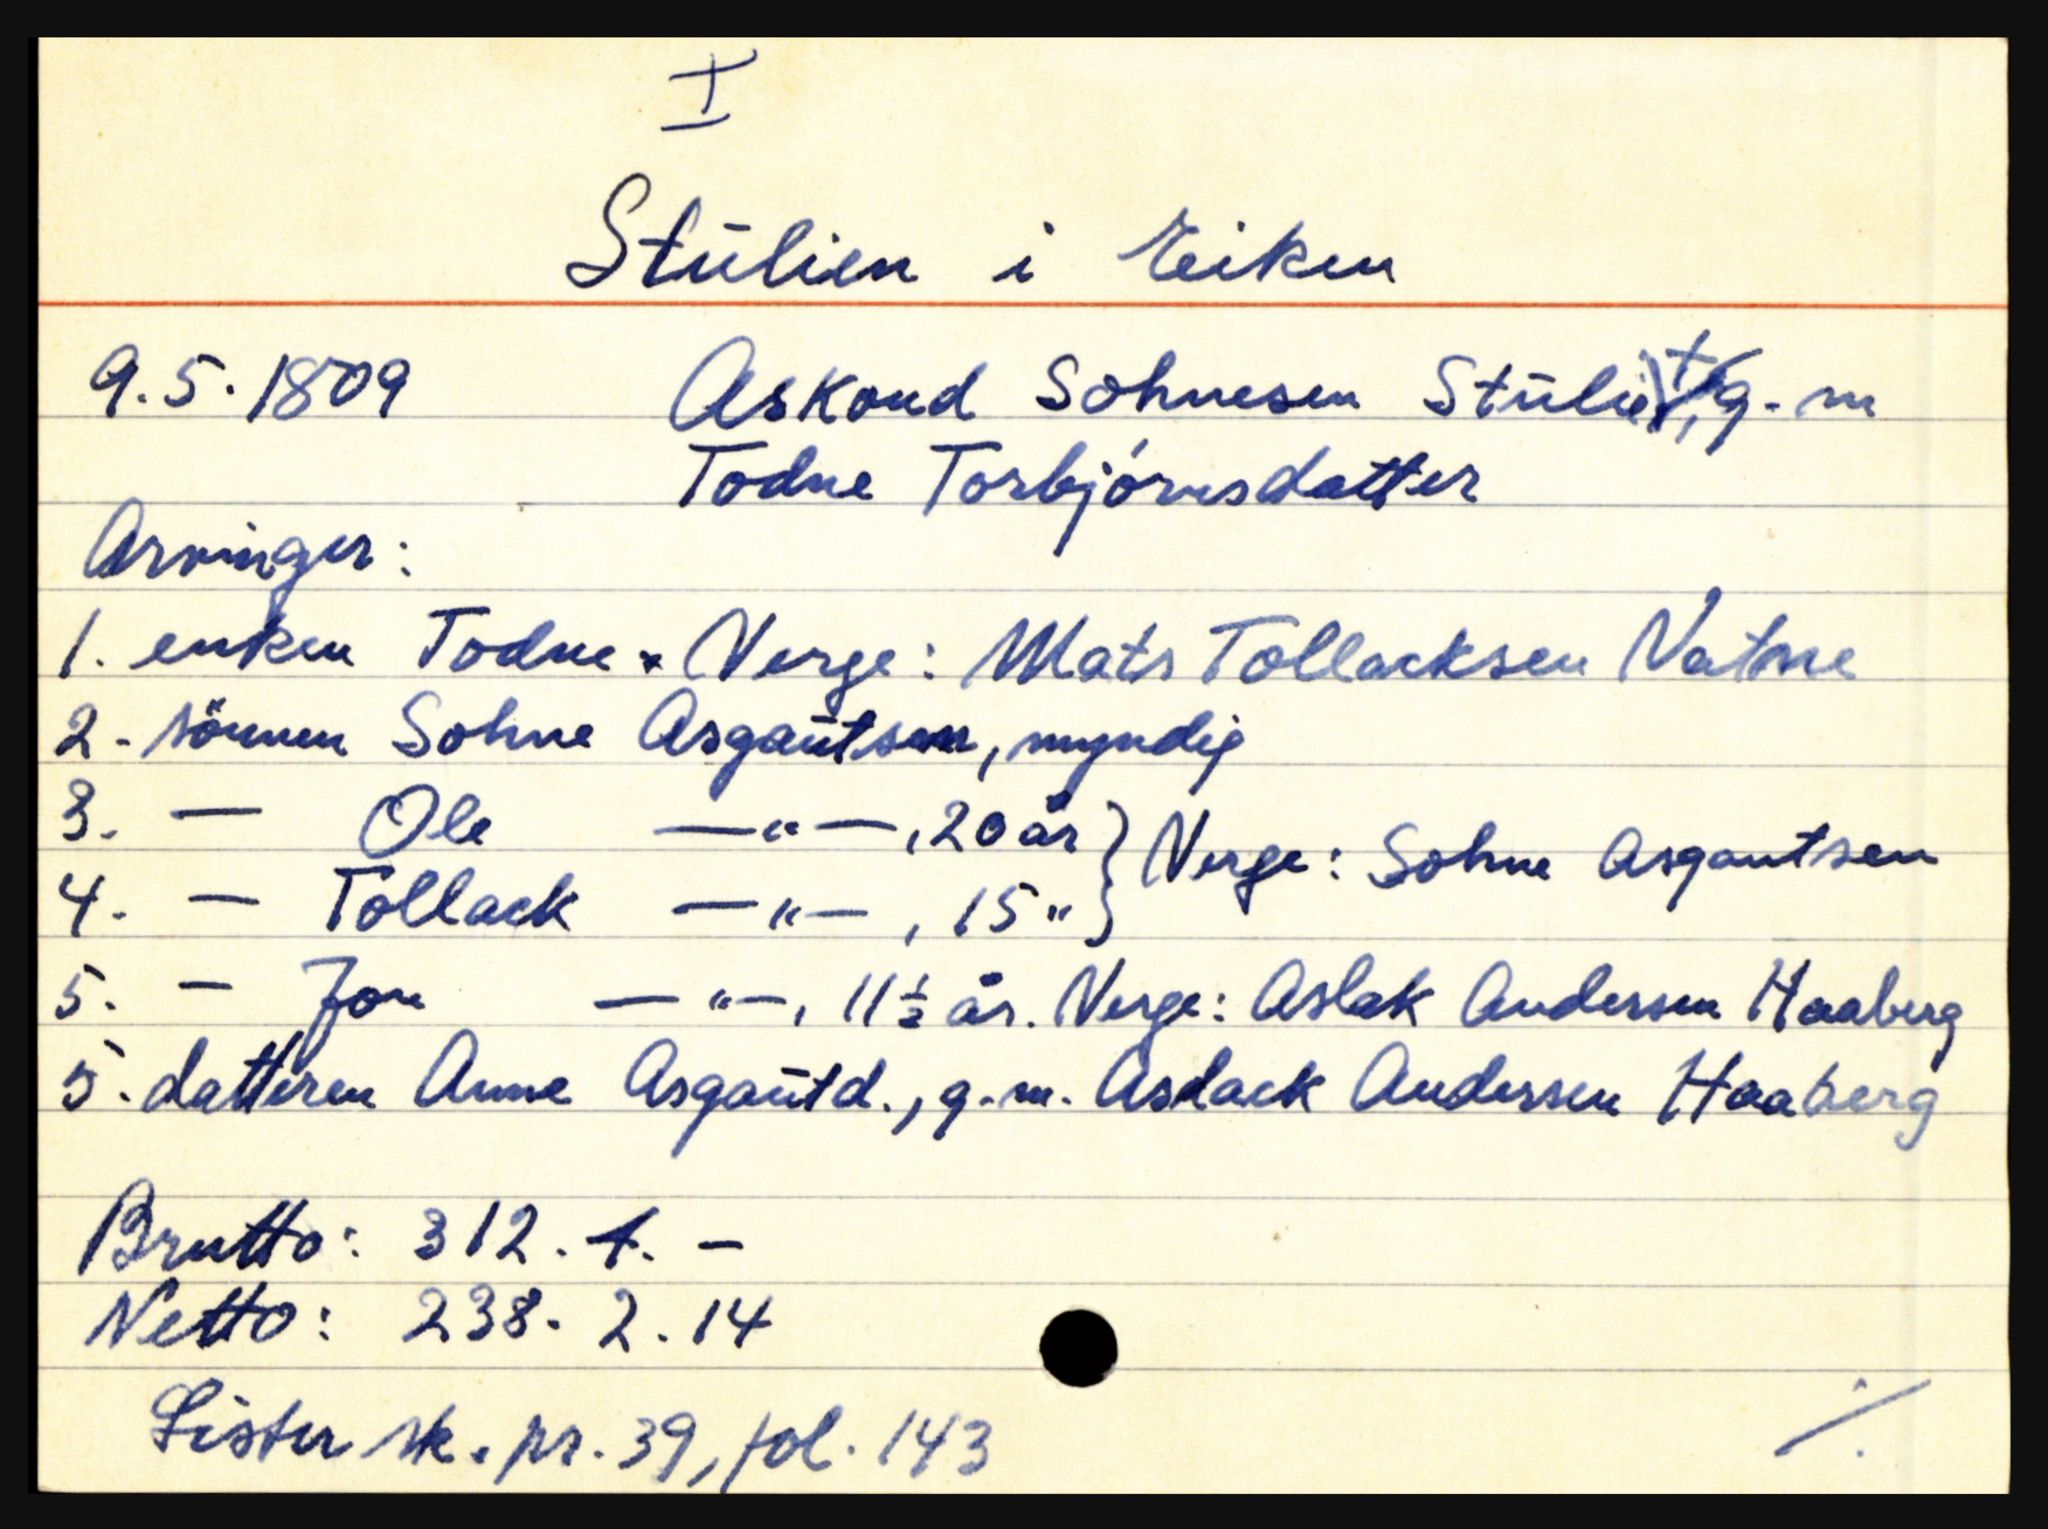 I
Stūlien i Eiken
9.5.1809 Askoud Sohnesen Stūlie †, g. m
Todne Torbjörnsdatter
Arvinger:
1. enken Todne. Verge: Mats Tollacksen Natme
2. sönnen Sohne Asgaūtsen, myndig
3. — Ole —"—, 20 år } Verge: Sohne Asgautsen
4. — Tollack —"—, 15 " }
5. — Jon —"—, 11½ år. Verge: Aslak Andersen Haaberg
5. datteren Anne Asgaūtd., g. m. Aslack Andersen Haaberg
Brutto: 312. 1. —
Netto: 238. 2. 14
Lister sk. pr. 39, fol. 143